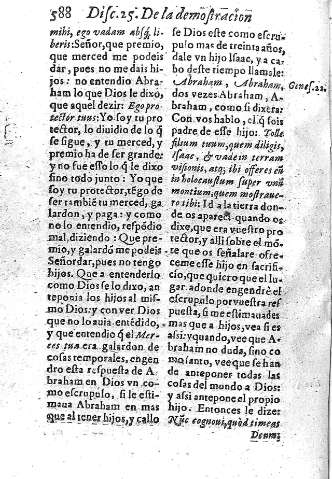 588 Disc. 25. De la demostracion
mihi, ego vadam absq; li-
beris: Señor, que premio,
que merced me podeis
dar, pues no me dais hi-
jos: no entendio Abra-
ham lo que Dios le dixo,
que aquel dezir: Ego pro-
tector tuus: Yo soy tu pro
tector, lo diuidio de lo q̃
se sigue, y tu merced, y
premio ha de ser grande:
y no fue esso lo q̃ le dixo
sino todo junto: Yo que
soy tu protector, tẽgo de
ser tambiẽ tu merced, ga
lardon, y paga: y como
no lo entendio, respõdio
mal, diziendo: Que pre-
mio, y galardõ me podeis
Señor dar, pues no tengo
hijos. Que a entenderlo
como Dios se lo dixo, an
teponia los hijos al mis-
mo Dios: y con ver Dios
que no lo auia entẽdido,
y que entendio q̃ el Mer-
ces tua era galardon de
cosas temporales, engen
dro esta respuesta de A-
braham en Dios vn co-
mo escrupulo, si le esti-
maua Abraham en mas
que al tener hijos, y callo
se Dios este como escru-
pulo mas de treinta años,
dale vn hijo Isaac, y a ca-
bo deste tiempo llamole:
Abraham, Abraham,
Genes. 22.
dos vezes Abraham, A-
braham, como si dixera:
Con vos hablo, el q̃ sois
padre de esse hijo: Tolle
filium tuum, quem diligis,
Isaac, & vade in terram
visionis, atq; ibi offeres eũ
in holocaustum super vnũ
montium, quem mostraue-
ro tibi: Id a la tierra don-
de os apareci quando os
dixe, que era vuestro pro
tector, y alli sobre el mõ-
te que os señalare ofre-
ceme esse hijo en sacrifi-
cio, que quiero que el lu
gar adonde engendrè el
escrupulo por vuestra res
puesta, si me estimauades
mas que a hijos, vea si es
assi: y quando, vee que A-
braham no duda, sino co
mo santo, vee que se han
de anteponer todas las
cosas del mundo a Dios:
y assi antepone el propio
hijo. Entonces le dize:
Nũc cognoui, quòd timeas
Deum;